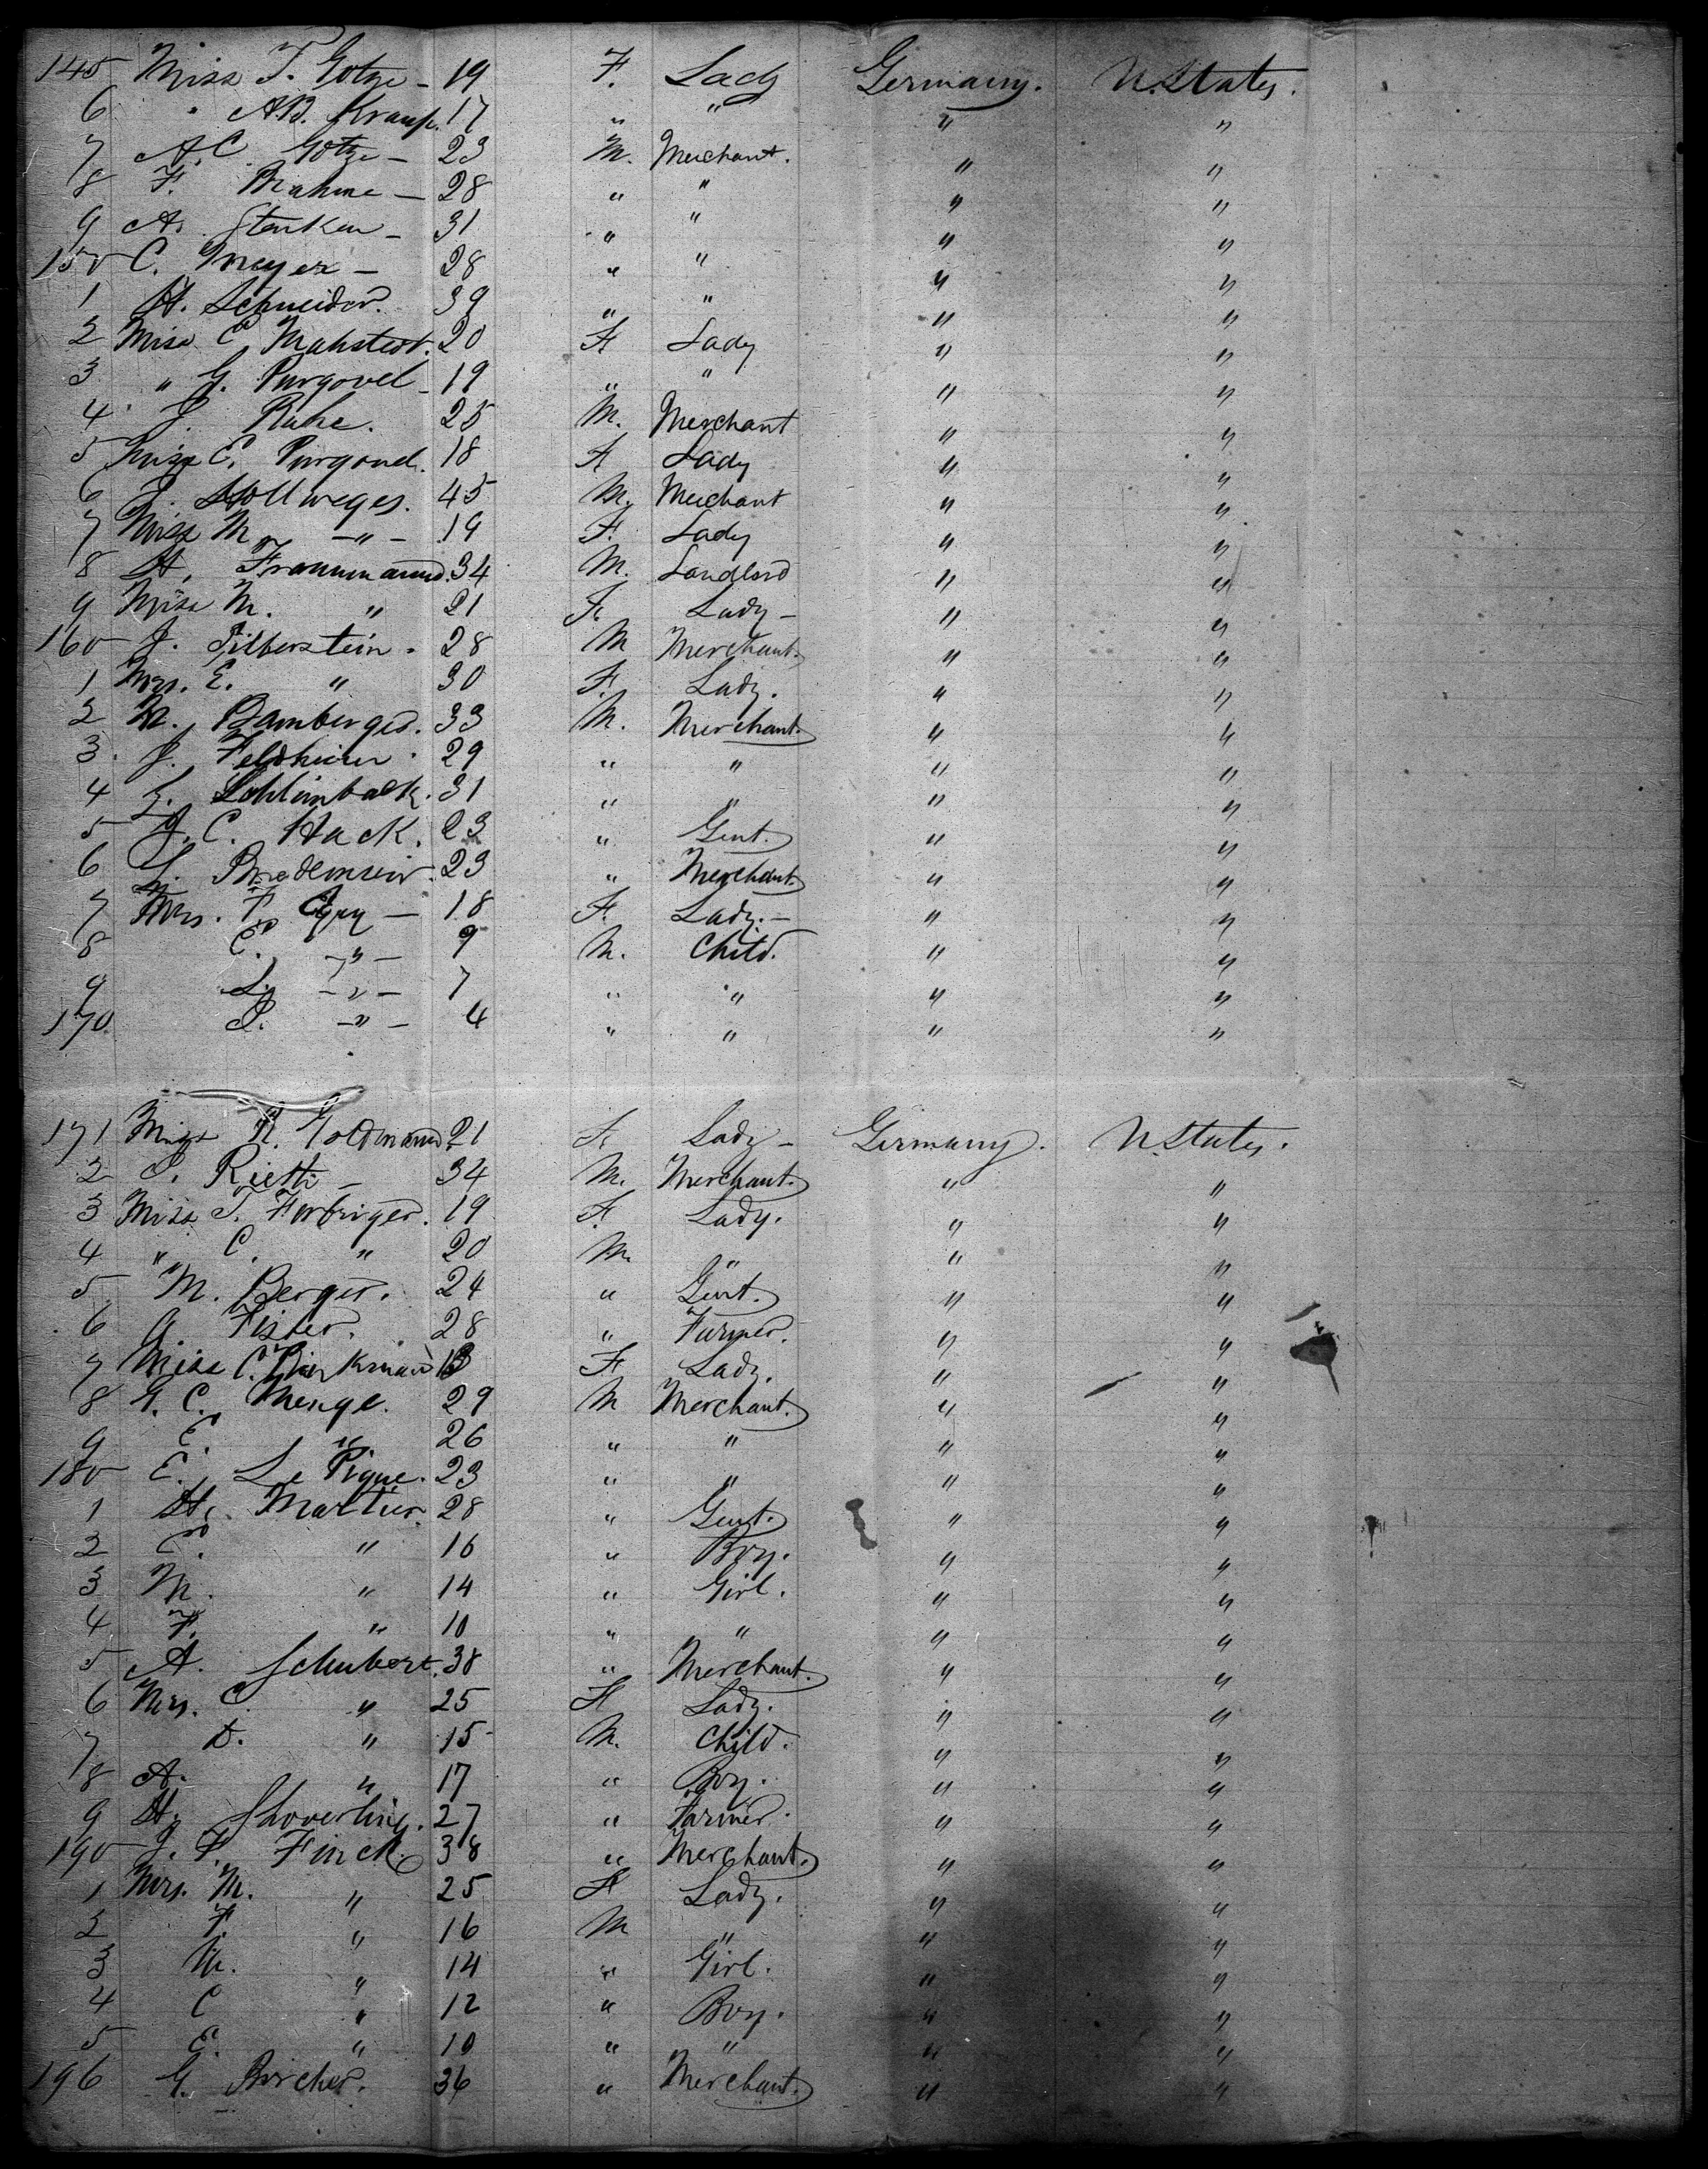 145 Miss T. Gotze - 19 F. Lady Germany. U. States.
6 " A.B. Kraup. 17 " " " "
7 A.C. Gotze - 23 M. Merchant. " "
8 F. Brahme - 28 " " " "
9 A. Stenken - 31 " " " "
150 C. Meyer - 28 " " " "
1 H. Schneider. 39 " " " "
2 Miss C. Mahstedt. 20 F Lady " "
3 " G. Purgovel - 19 " " " "
4 J. Ruhe. 25 M. Merchant " "
5 Miss E. Purgovel. 18 F Lady " "
6 J. Hollweges. 45 M. Merchant " "
7 Miss M -"- 19 F. Lady " "
8 H. Frommann. 34 M. Landlord " "
9 Miss M. " 21 F. Lady - " "
160 J. Silberstein. 28 M Merchant. " "
1 Mrs. E. " 30 F. Lady. " "
2 M. Bamberger. 33 M. Merchant. " "
3 J. Feldheim. 29 " " " "
4 L. Schlimback. 31 " " " "
5 J. C. Hack. 23 " Gent. " "
6 L. 23 " Merchant. " "
7 Mrs. F. - 18 F. Lady. - " "
8 C. -"- 9 M. Child. " "
9 L. -"- 7 " " " "
170 S. -"- 4 " " " "
171 Miss R. Goldmann 21 F. Lady - Germany. U. States.
2 S. Rieth - 34 M. Merchant. " "
3 Miss T. Forbriger. 19 F. Lady. " "
4 " C. " 20 M. " " "
5 M. Berger. 24 " Gent. " "
6 G. Fisher. 28 " Farmer. " "
7 Miss C. F Lady. " "
8 G. C. Menge. 29 M Merchant. " "
9 E. " 26 " " " "
180 E. Le Pique. 23 " " " "
1 H. Martin. 28 " Gent. " "
2 C. " 16 " Boy. " "
3 M. " 14 " Girl. " "
4 F. " 10 " " " "
5 A. Schubert. 38 " Merchant. " "
6 Mrs. C. " 25 F Lady. " "
7 D. " 15 M. Child. " "
8 A. " 17 " Boy. " "
9 H. Shoverling. 27 " Farmer. " "
190 J. F. Finck. 38 " Merchant. " "
1 Mrs. M. " 25 F Lady. " "
2 F. " 16 M " " "
3 M. " 14 " Girl. " "
4 C " 12 " Boy. " "
5 E. " 10 " " " "
196 G. Borcher. 36 " Merchant. " "